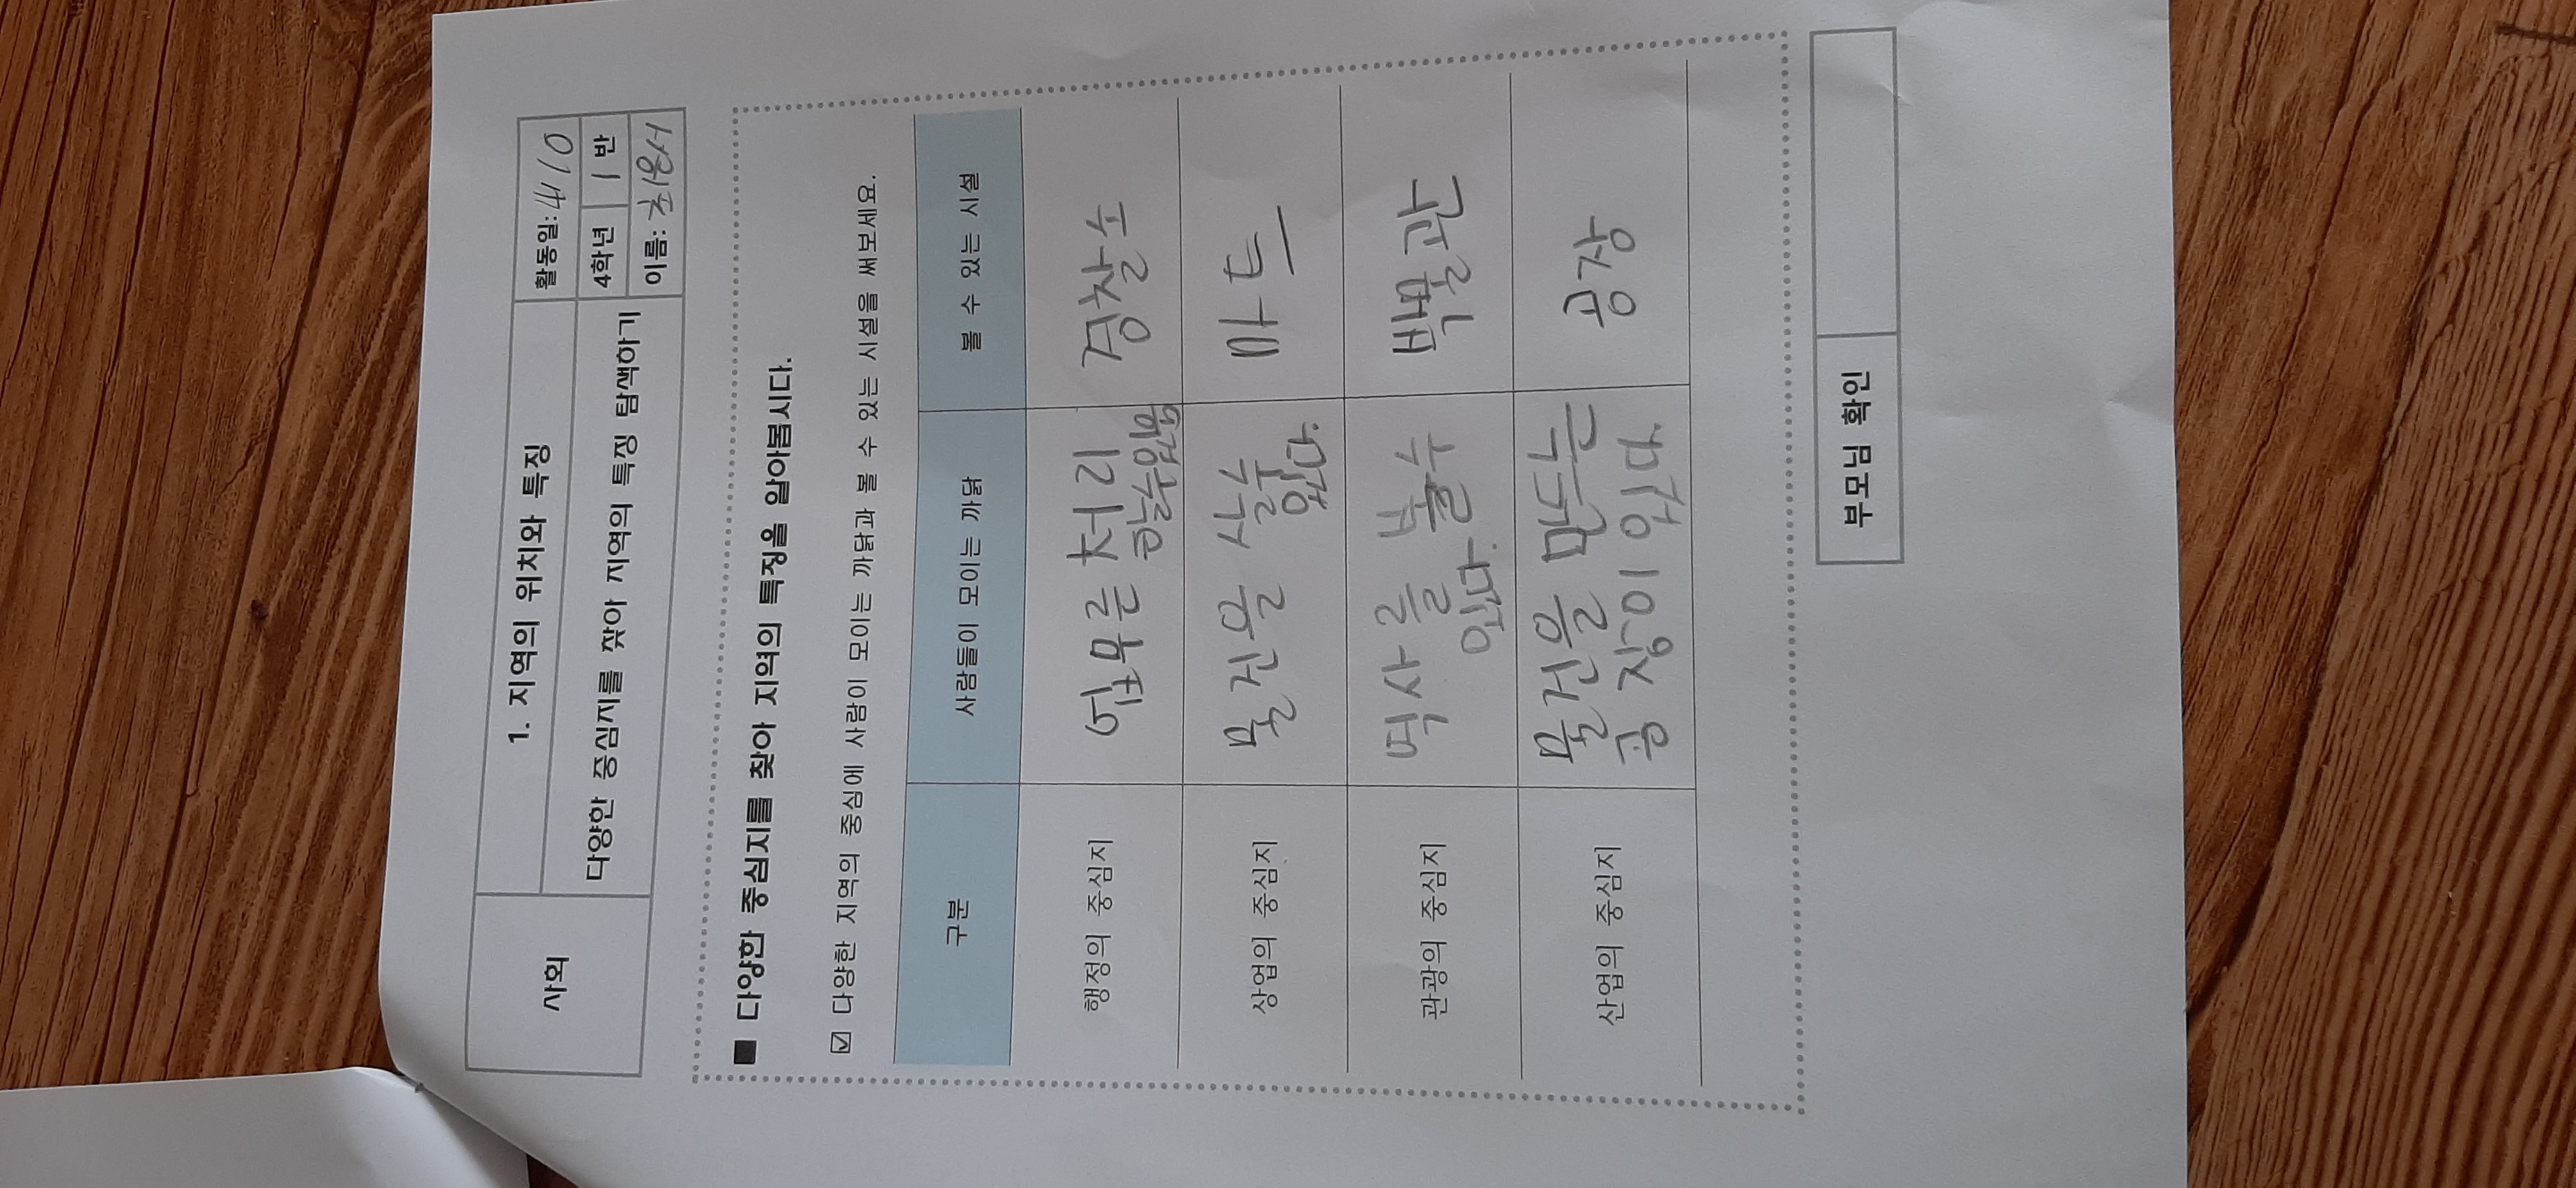 사회
1. 지역의 위치와 특징
활동일: 4/10
다양한 중심지를 찾아 지역의 특징 탐색하기
4학년 1 반
이름: 최용서
■ 다양한 중심지를 찾아 지역의 특징을 알아봅시다.
☑ 다양한 지역의 중심에 사람이 모이는 까닭과 볼 수 있는 시설을 써보세요.
구분 사람들이 모이는 까닭 볼 수 있는 시설
행정의 중심지
업무른 처리
할수있음
경찰소
상업의 중심지
물건을 살수
있다.
마트
관광의 중심지
역사를 볼수
있다.
박물관
산업의 중심지
물건을 만드는
공장이 있다.
공장
부모님 확인